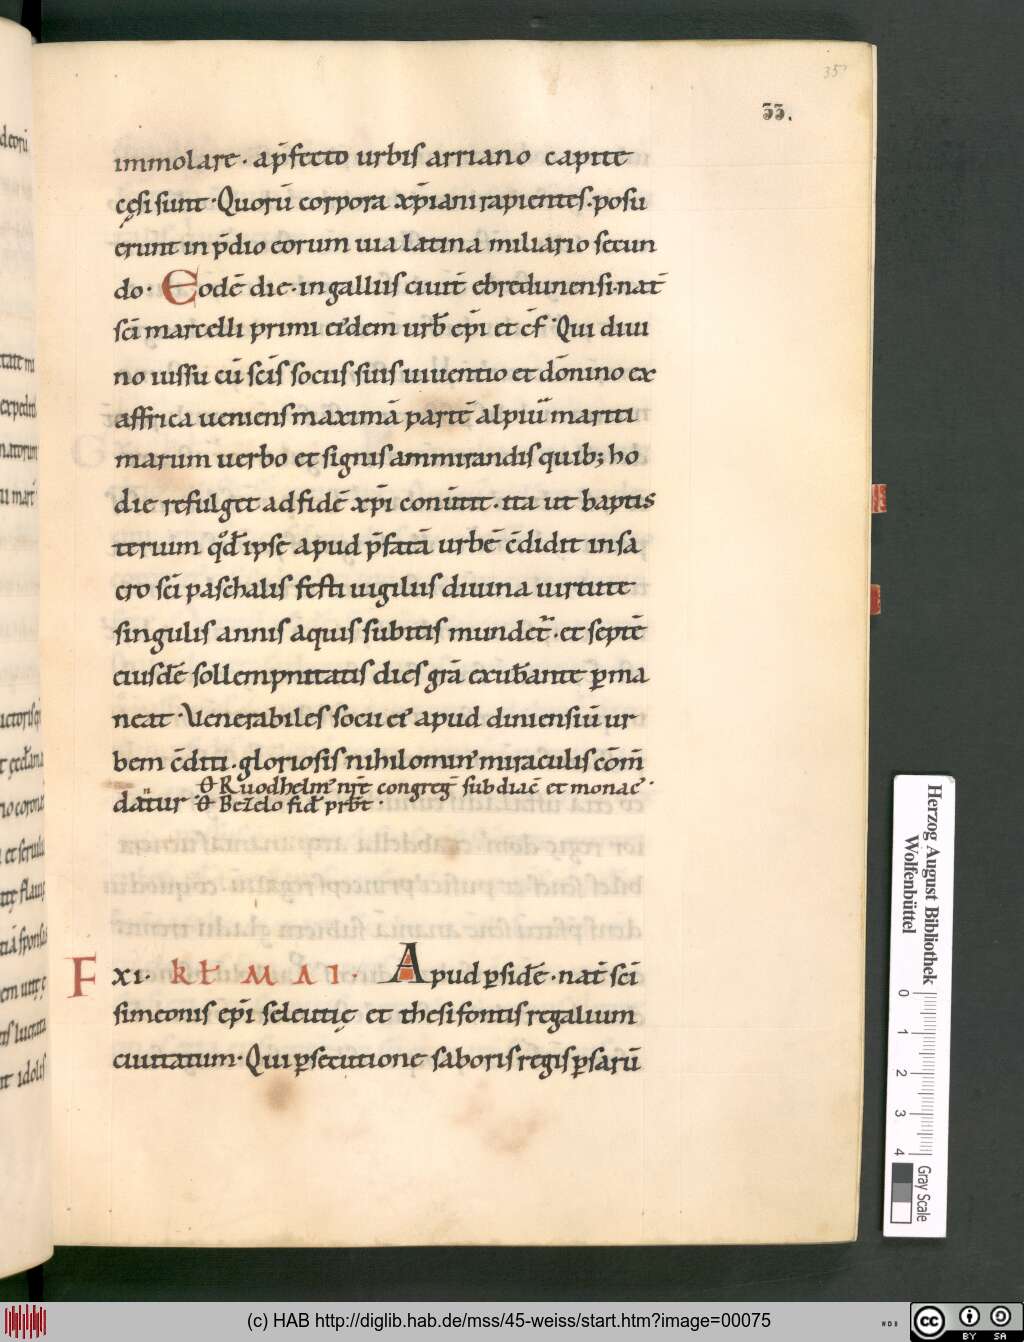 35
33.
immolare · a p̄fecto urbis arriano capite
cęsi sunt · Quorū corpora xp̄iani rapientes · posu
erunt in p̄dio eorum uia latina miliario secun
do · Eodē die · in galliis ciuit̄ ebredunensi · nat̄
sc̄i marcelli primi eiꝰdem urb̄ ep̄i et c̄f · Qui diui
no iussu cū sc̄is sociis suis uiuentio et dōnino ex
affrica ueniens maximā partē alpiū mariti
marum uerbo et signis ammirandis quib; ho
die refulget ad fidē xp̄i conūtit · ita ut baptis
terium qđ ipse apud p̄fatā urbē c̄didit in sa
cro sc̄i paschalis festi uigiliis diuina uirtute
singulis annis aquis subitis mundet̄ · et septē
eiusdē sollempnitatis dies grā exub̄ante ꝑma
neat · Venerabiles socii eiꝰ apud diniensiū ur
bem c̄diti · gloriosis nihilominꝰ miraculis cōm̄
dātur
Ꝋ Ruodhelmꝰ nr̄ę congreg̃ subdiac̄ et monac̄ ·
Ꝋ Bezelo fid̄ prb̄t ·
F xi · kł mai · Apud ꝑsidē · nat̄ sc̄i
simeonis ep̄i seleutię et thesifontis regalium
ciuitatum · Qui ꝑsecutione saboris regis ꝑsarū
Herzog August Bibliothek
Wolfenbüttel
0 1 2 3 4
Gray Scale
(c) HAB http://diglib.hab.de/mss/45-weiss/start.htm?image=00075
WDB
cc BY SA